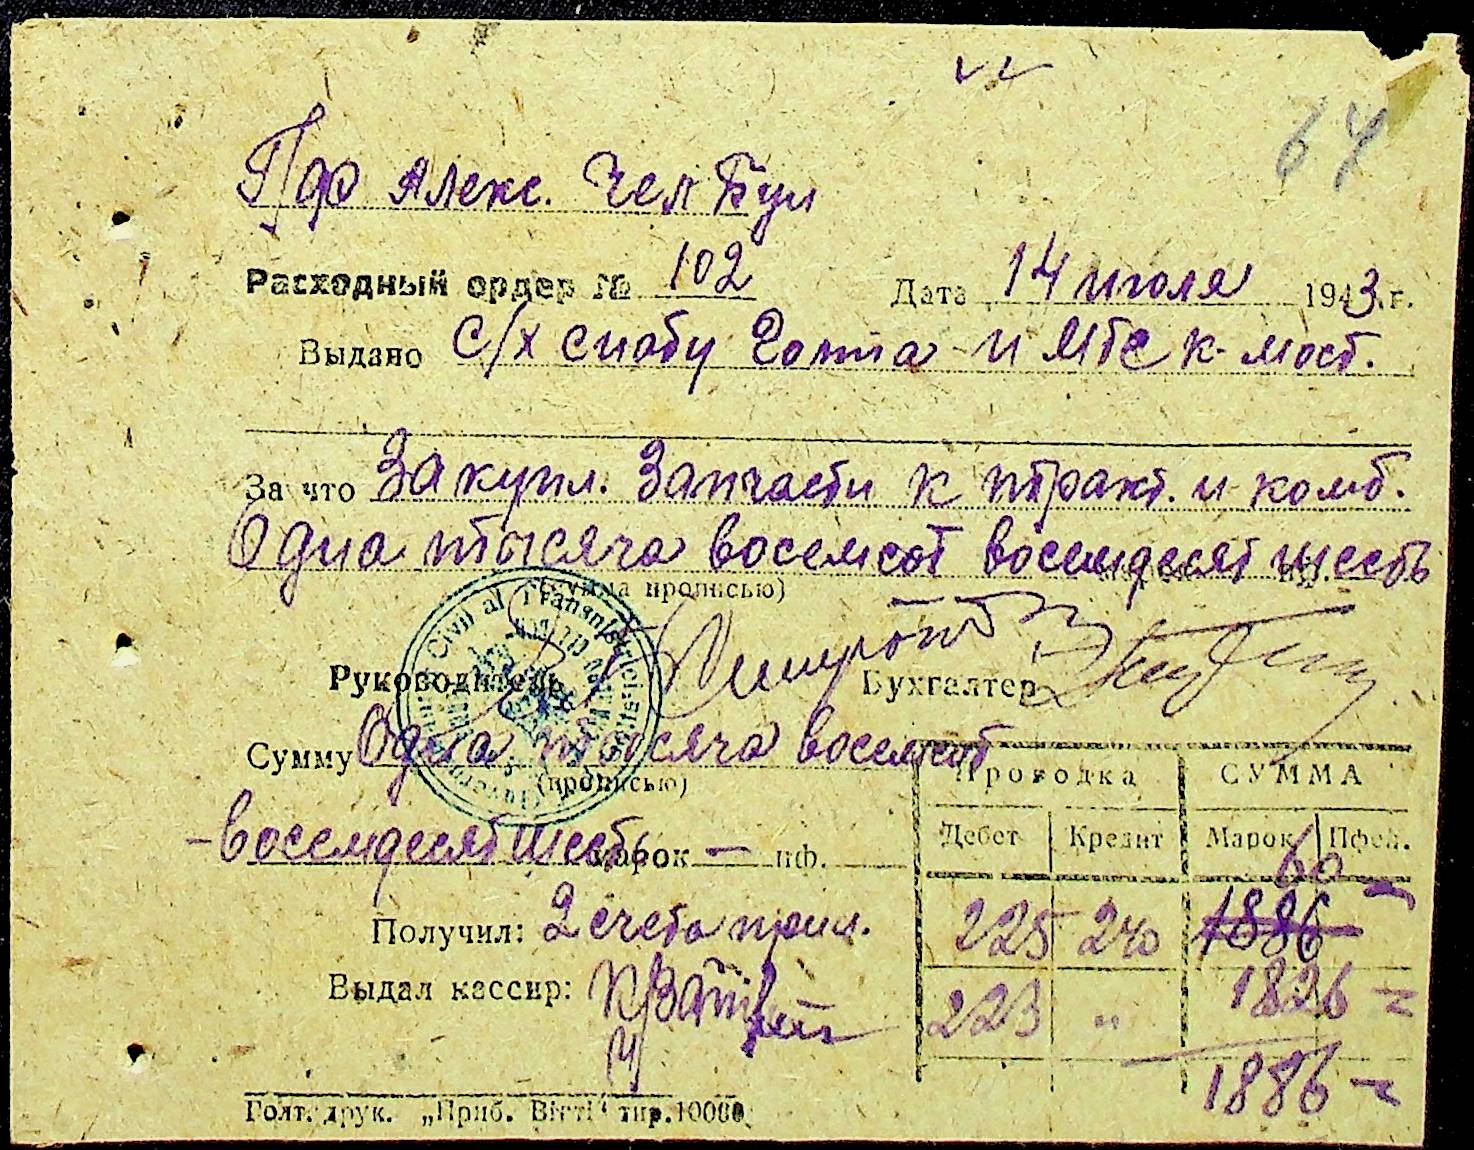 64
П/ф Алекс. Чел Бул
Расходный ордер № 102 Дата 14 июля 1943 г.
Выдано с/х снабу Голта и МТС к-мост.
За что Закупл. Запчасти к тракт. и комб.
Одна тысяча восемсот восемдесят шесть
(Сумма прописью)
Руководитель Бухгалтер
Сумму Одна тысяча восемсот
(прописью)
Проводка СУММА
- восемдесят шесть марок — пф.
Дебет Кредит Марок Пфен.
60 —
Получил: 2 счета прил. 225 240 1886 —
Выдал кассир: 223 " 1826 =
1886 =
Голт. друк. „Приб. Вісті" тир. 10000